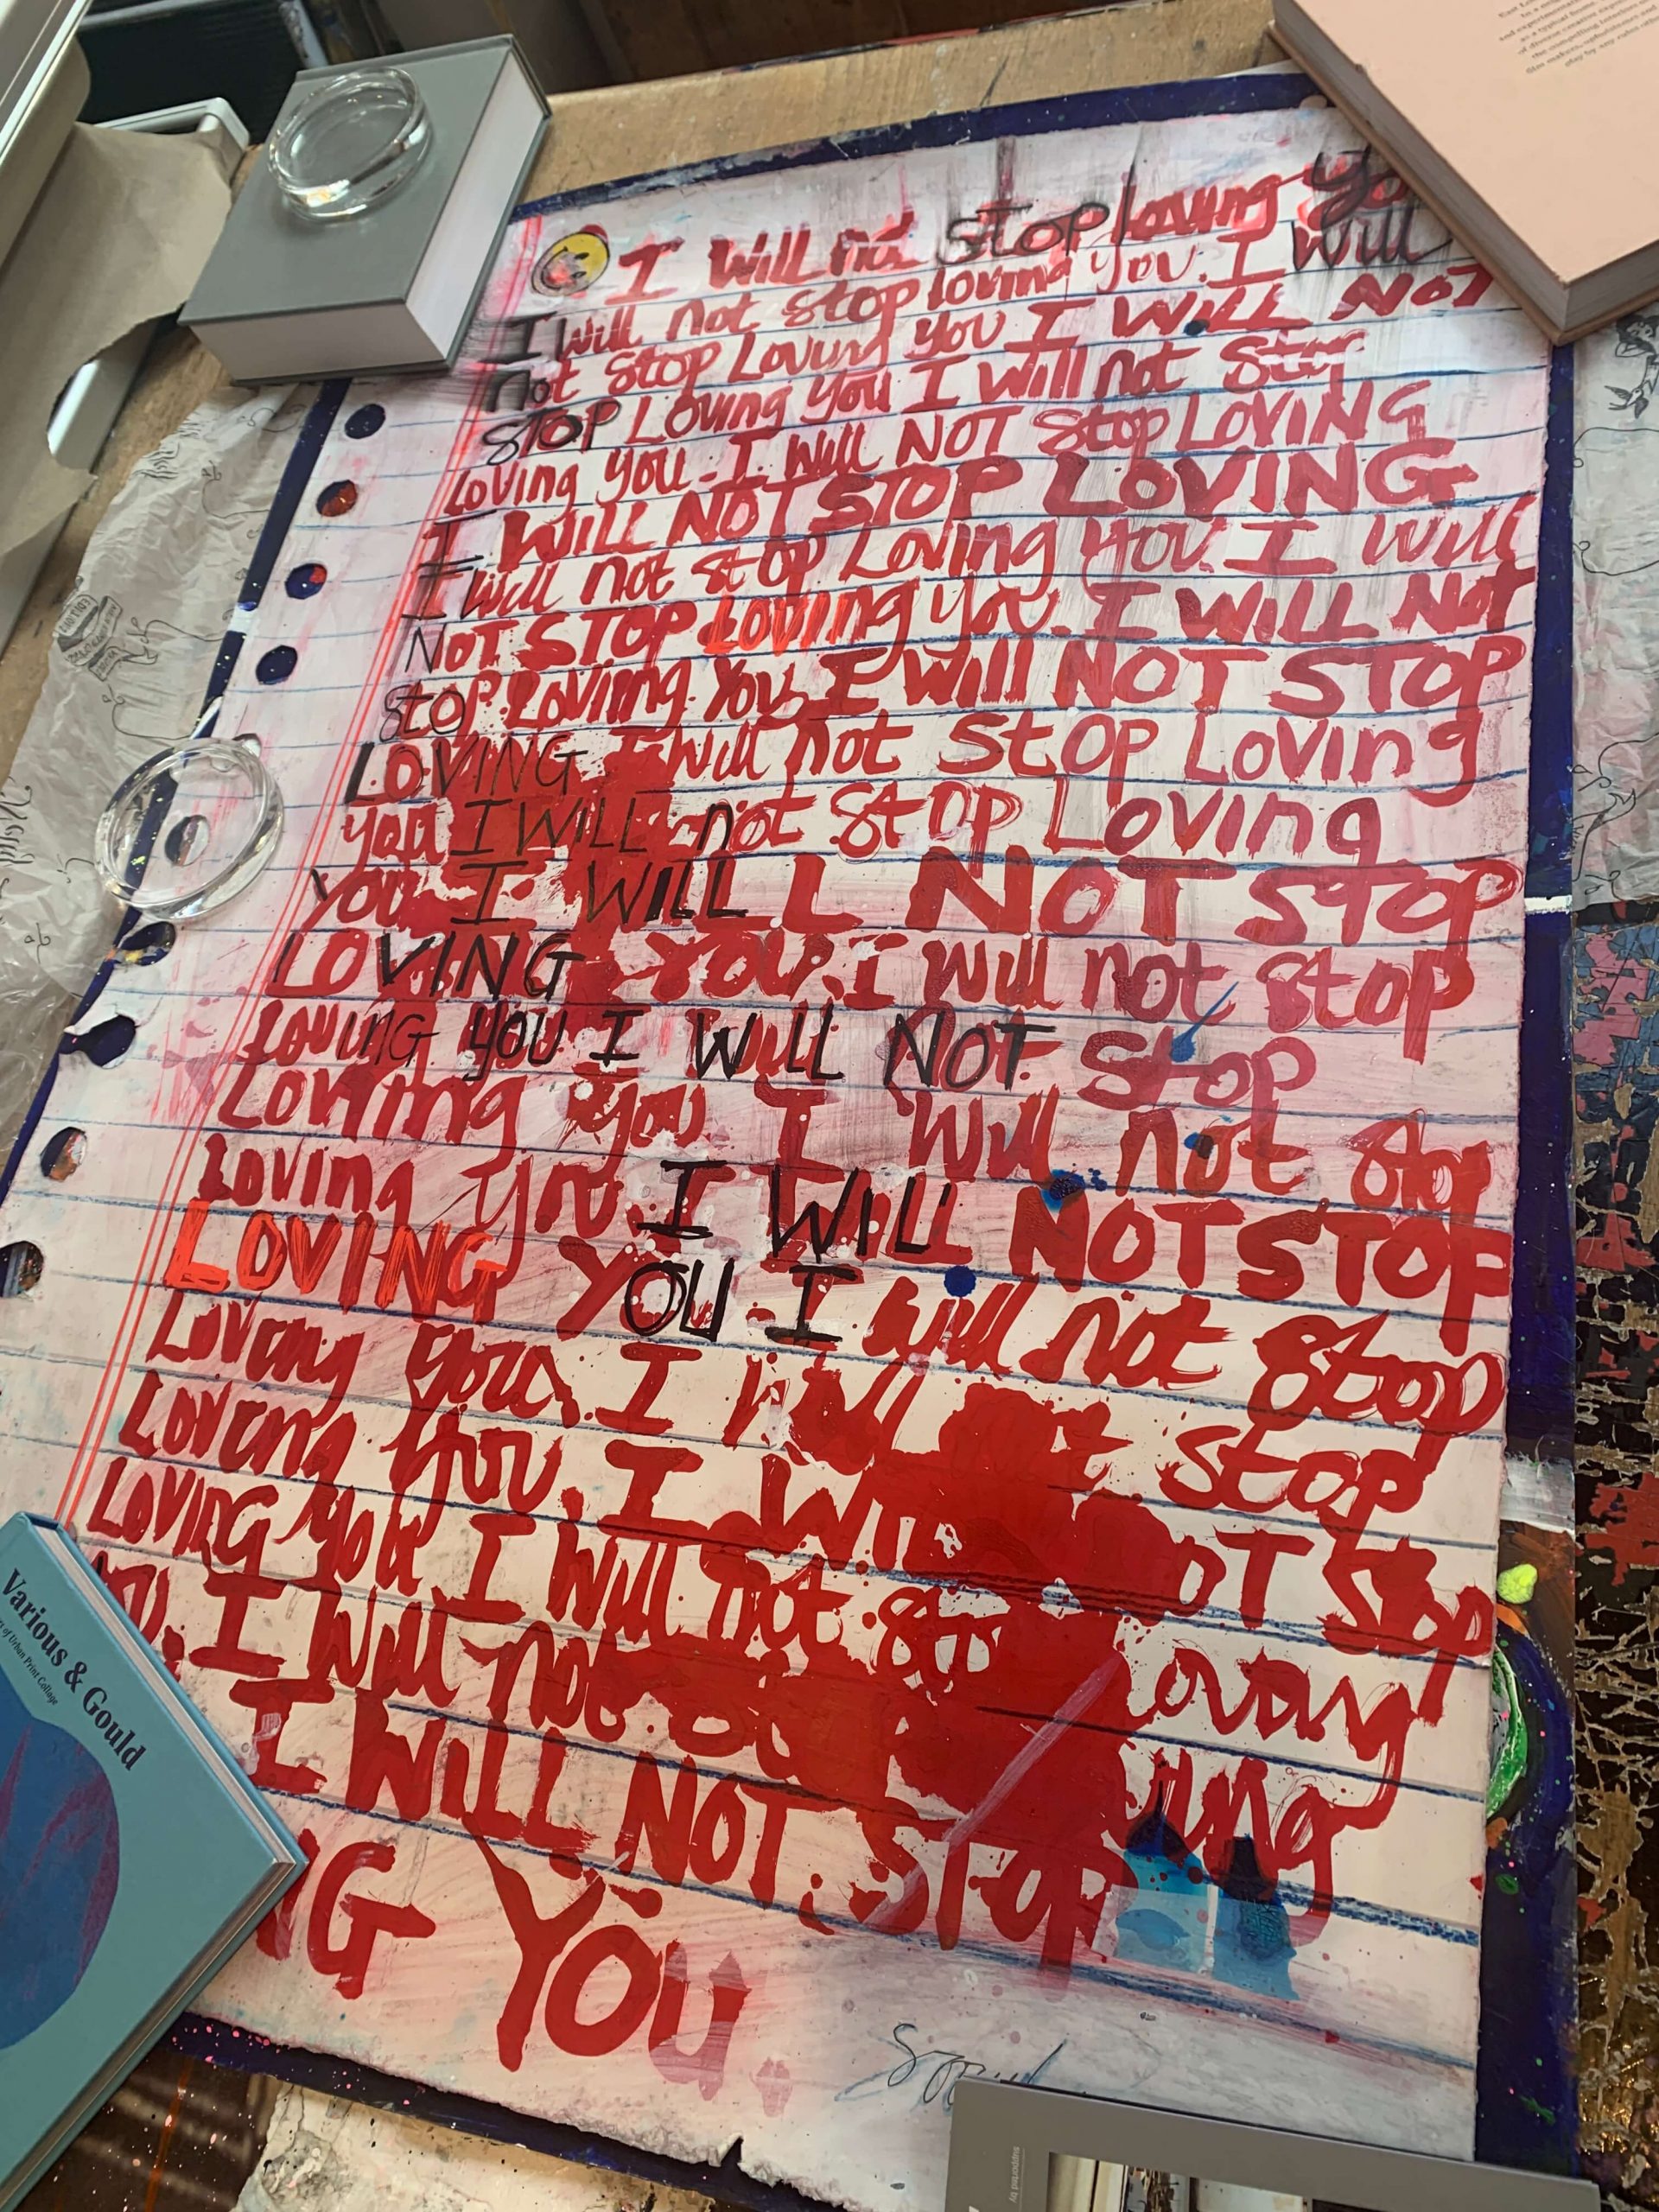 I Will not STOP loving Yo
I Will not Stop loving you. I Will
not Stop Loving you I WILL NOT
STOP Loving you I Will not Stop
Loving you. I Will NOT Stop LOVING
I WILL NOT STOP LOVING
I Will not Stop Loving you I Will
NOT STOP Loving you. I WILL Not
Stop Loving You I Will NOT STOP
LOVING I Will not Stop Loving
you I WILL not Stop Loving
you I WILL NOT STOP
LOVING YOU. I Will not Stop
Loving you I WILL NOT Stop
Loving you I Will not Stop
Loving you I WILL NOT STOP
LOVING YOU I will not Stop
Loving you I not Stop
Loving You I WILL NOT Stop
LOVING You I Will not Stop Loving
you. I Will not
I WILL NOT STOP
NG YOU.
Various & Gould
of Urban Print Collage
Supported by